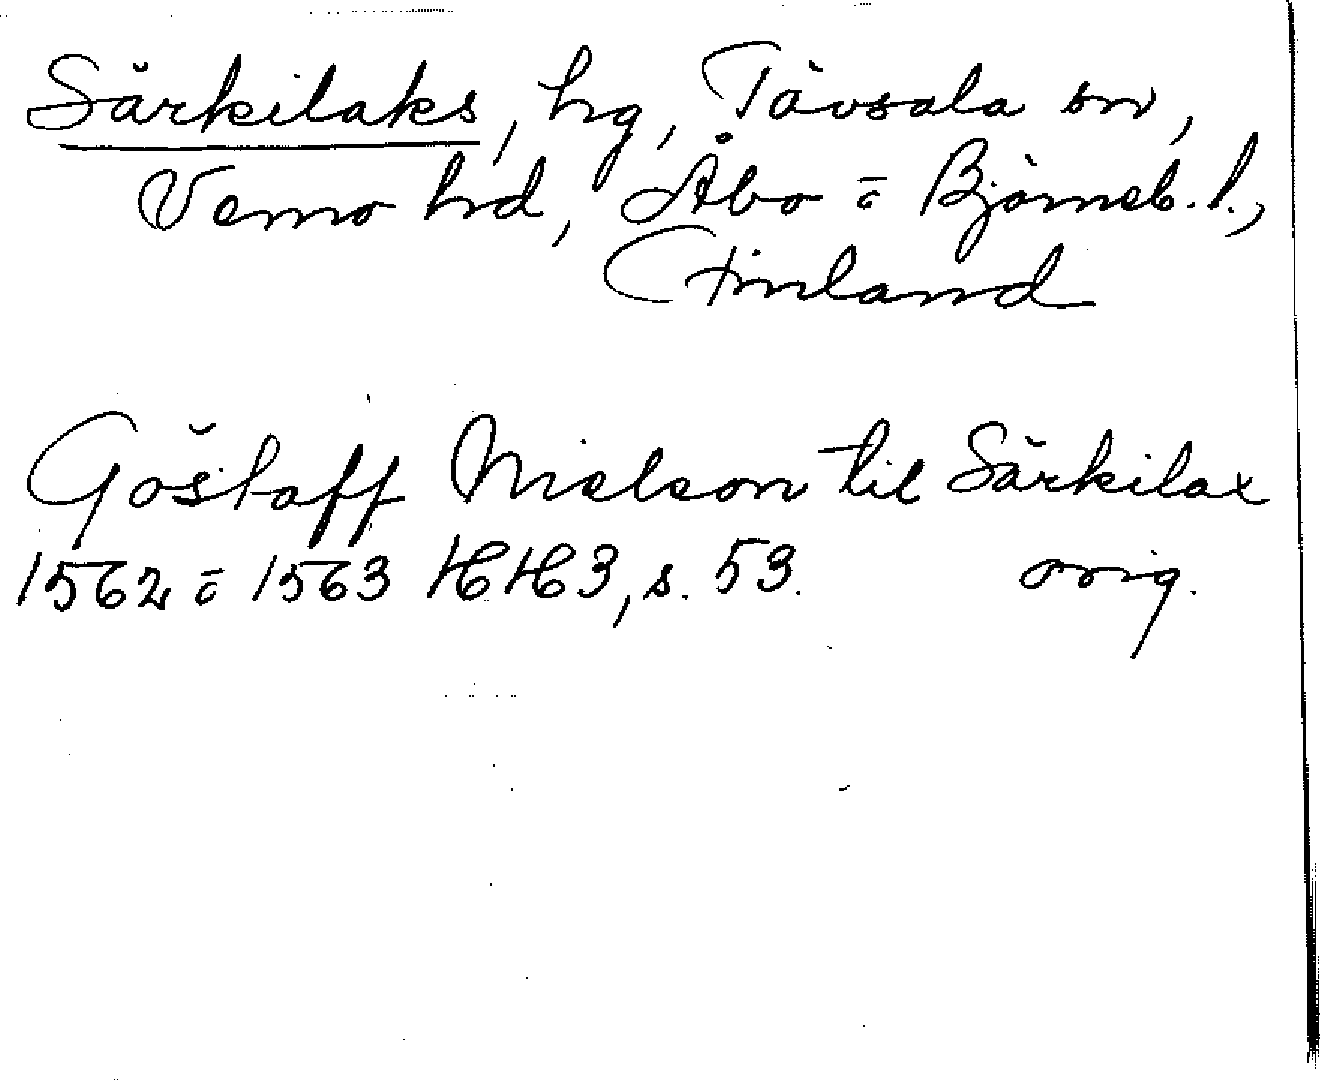 Särkilaks, hg, Tövsala sn,
Vemo hd, Åbo o Björneb. l.,
Finland
Göstaff Nielson til Särkilax
1562 o 1563 HH3, s. 53. orig.